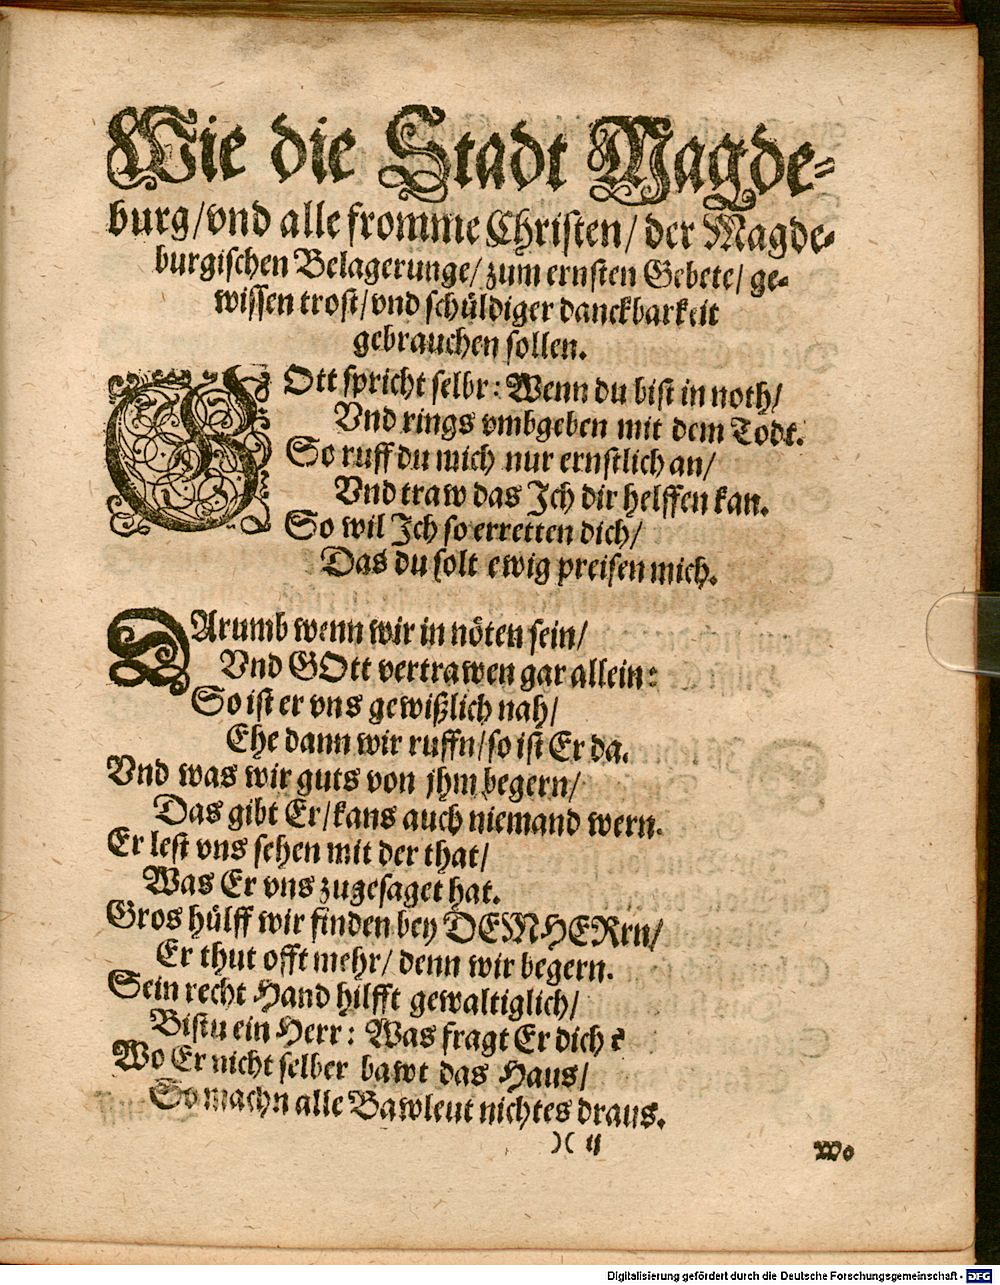 Wie die Stadt Magde-
burg/vnd alle fromme Christen/ der Magde-
burgischen Belagerunge/ zum ernsten Gebete/ ge-
wissen trost/ vnd schüldiger danckbarkeit
gebrauchen sollen.
GOtt spricht selbr: Wenn du bist in noth/
Vnd rings vmbgeben mit dem Todt.
So ruff du mich nur ernstlich an/
Vnd traw das Ich dir helffen kan.
So wil Ich so erretten dich/
Das du solt ewig preisen mich.
DArumb wenn wir in nöten sein/
Vnd GOtt vertrawen gar allein:
So ist er vns gewißlich nah/
Ehe dann wir ruffn/so ist Er da.
Vnd was wir guts von jhm begern/
Das gibt Er/kans auch niemand wern.
Er lest vns sehen mit der that/
Was Er vns zugesaget hat.
Gros hülff wir finden bey DEM HERrn/
Er thut offt mehr/ denn wir begern.
Sein recht Hand hilfft gewaltiglich/
Bistu ein Herr: Was fragt Er dich?
Wo Er nicht selber bawt das Haus/
So machn alle Bawleut nichtes draus.
)( ij
Wo
Digitalisierung gefördert durch die Deutsche Forschungsgemeinschaft - DFG